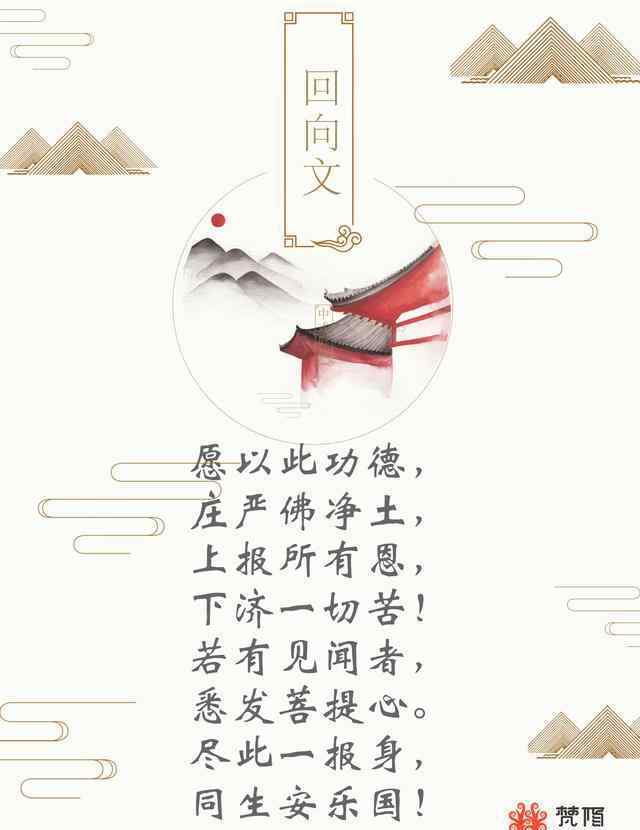 回向文
中
愿以此功德，
庄严佛净土，
上报所有恩，
下济一切苦！
若有见闻者，
悉发菩提心。
尽此一报身，
同生安乐国！
梵修